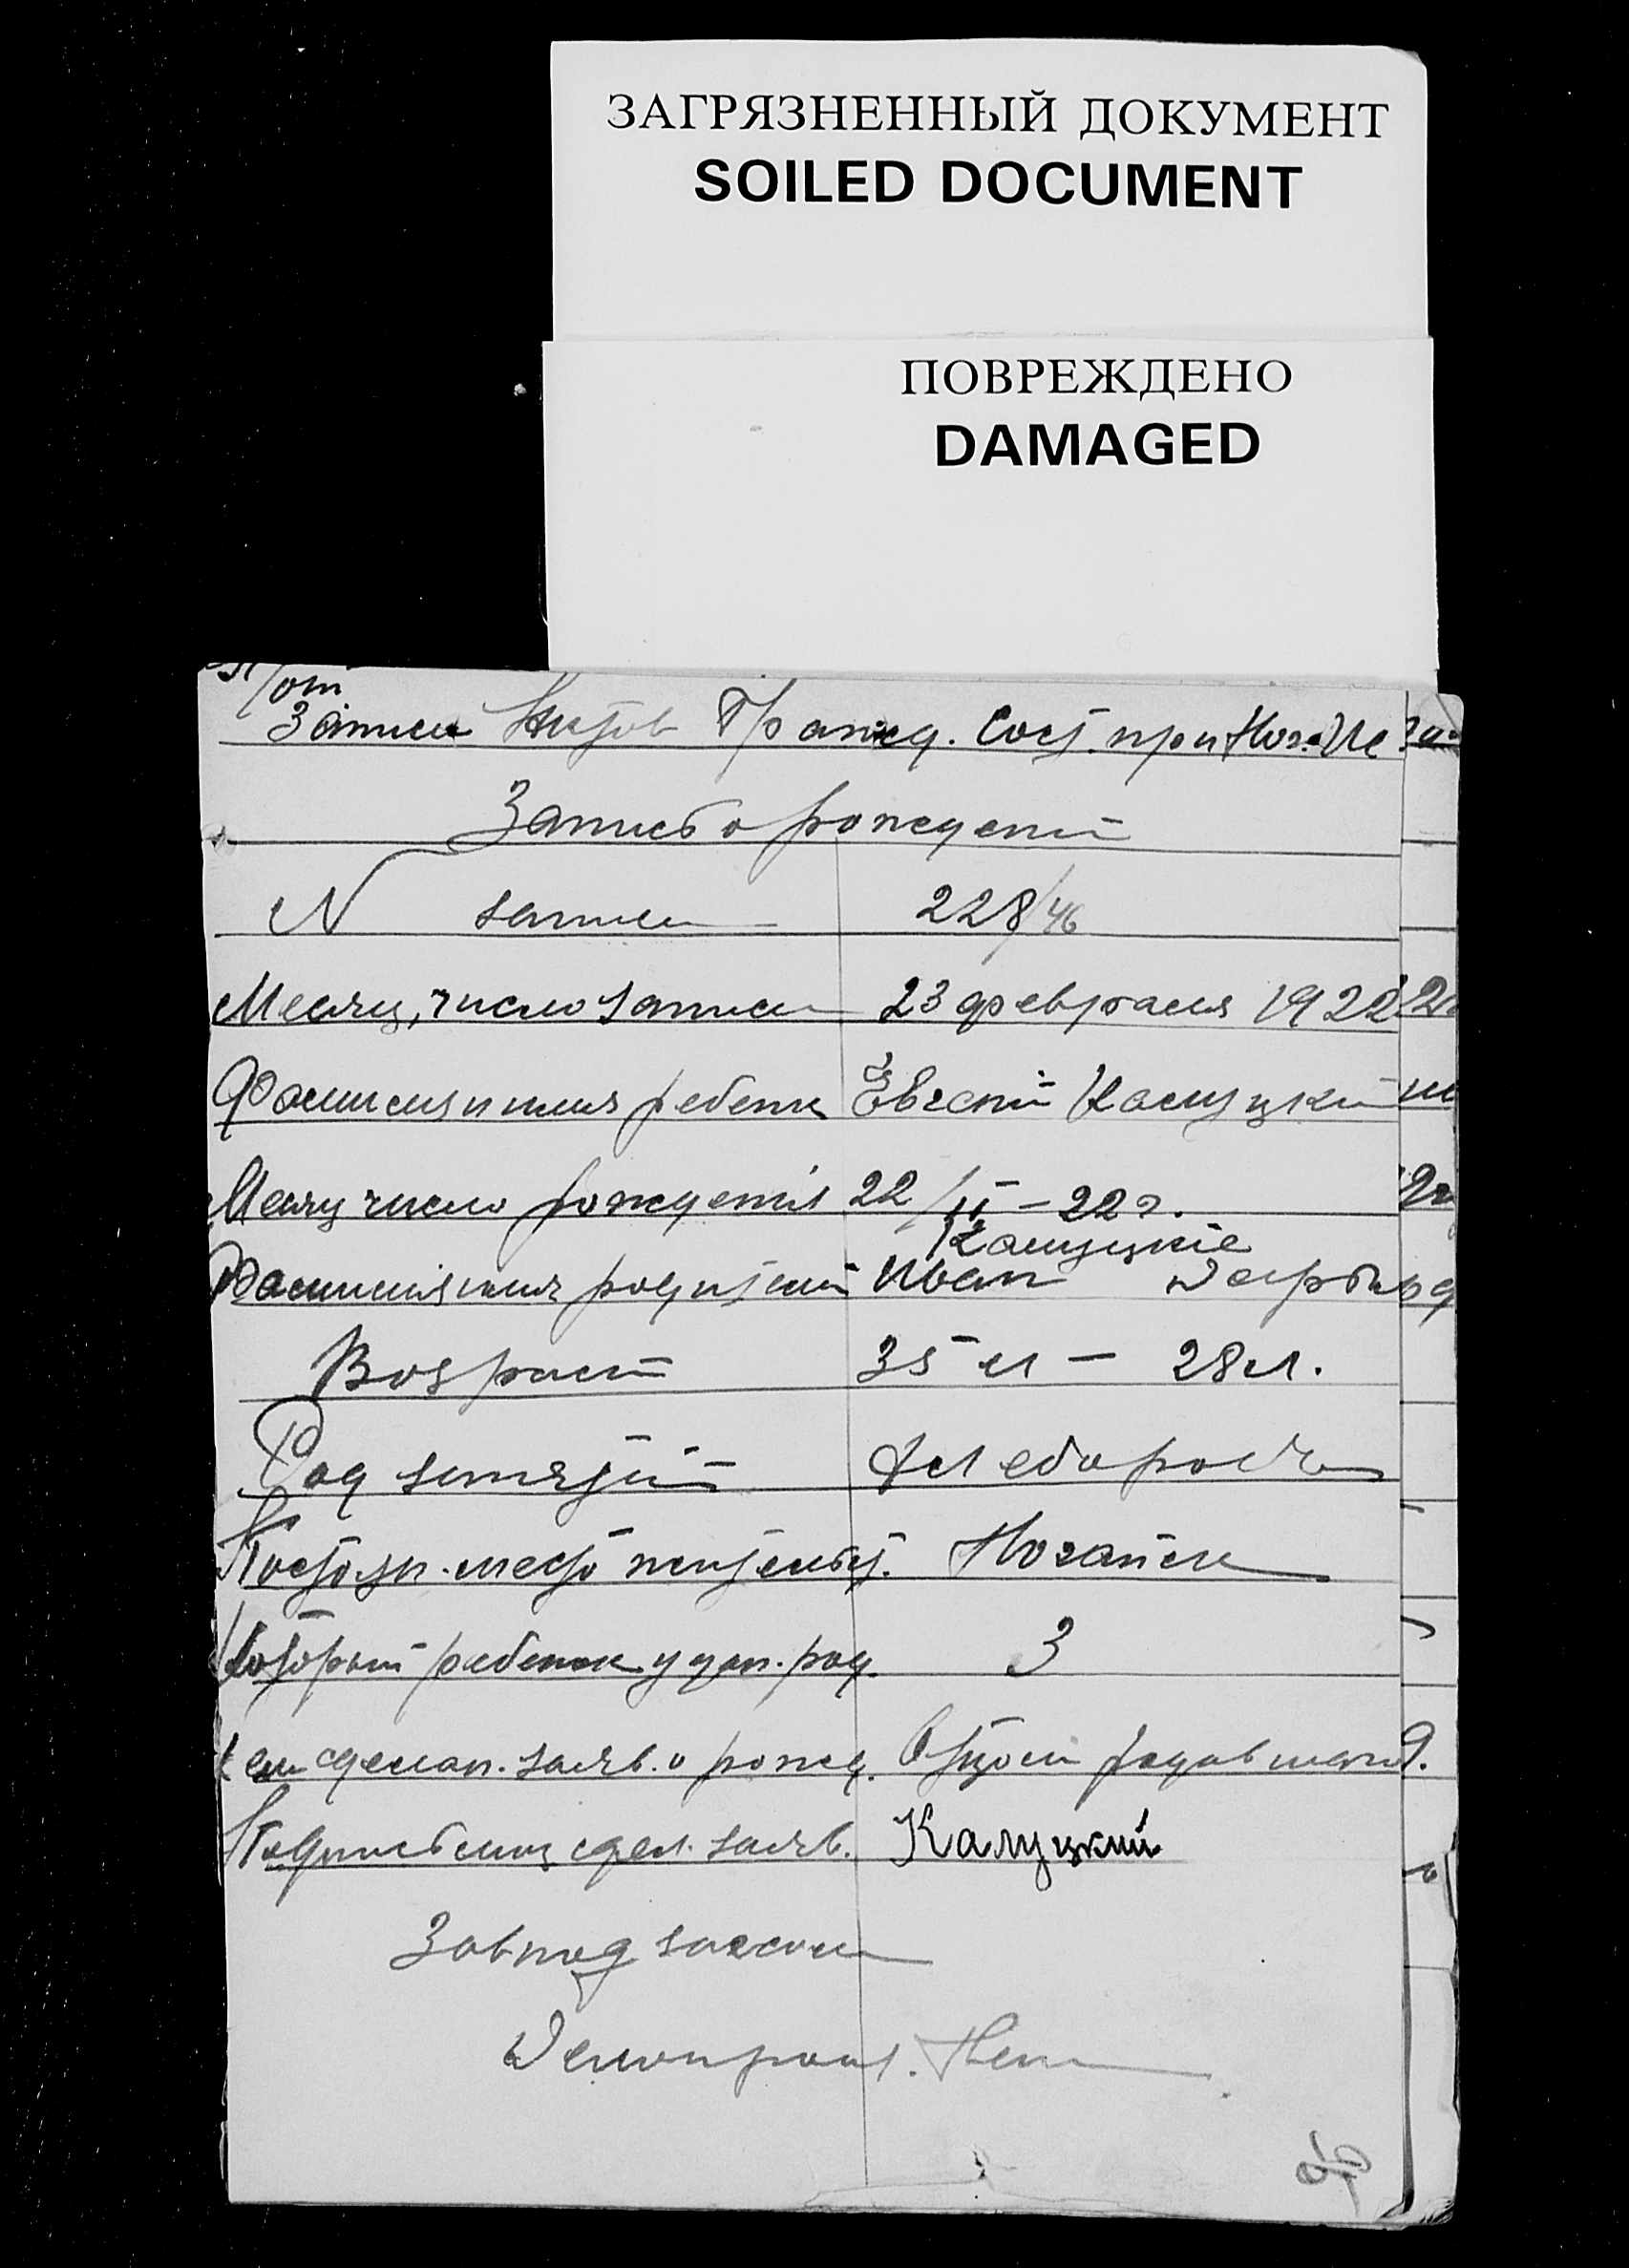 ЗАГРЯЗНЕННЫЙ ДОКУМЕНТ
SOILED DOCUMENT
ПОВРЕЖДЕНО
DAMAGED
П/от
Записи Актов Гражд. Сост. при Ног.
Запись о рождении
N записи 228/46
Месяц, число записи 23 февраля 1922
Фамилия и имя ребенк Калуцкий
Месяц число рождения 22/II – 22 г.
Калуцкие
Фамилия имя родителей Иван
Возраст 35 л – 28 л.
Род занятий Хлебороб
Постоян. место жительст. Ногайск
Который ребенок у дан. род. 3
Кем сделан. заявл. о рожд. Отцом
Подпись лиц сдел. заявл. Калуцкий
Завподзагсом
Делопроиз.